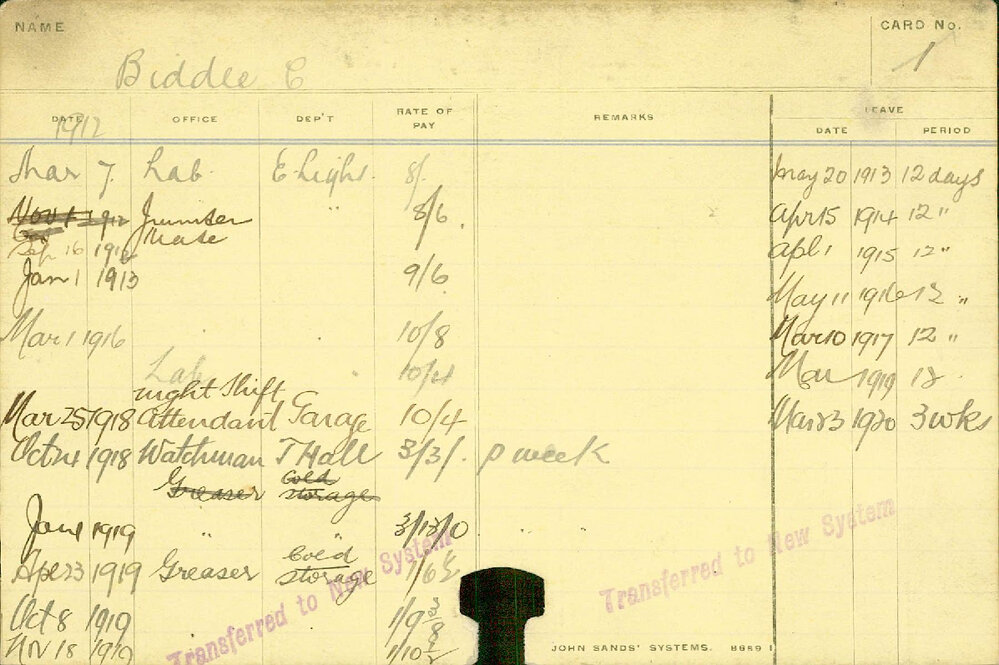 NAME
CARD No.
Biddle C
1
DATE OFFICE DEP'T RATE OF PAY REMARKS LEAVE
DATE PERIOD
1912
Mar 7. Lab. E Light. 8/. May 20 1913 12 days
Nov 1 1912 Jumber " 8/6. Apr 15 1914 12 "
Mate
Sep 16 1912 Apl 1 1915 12 "
Jan 1 1913 9/6. May 11 1916 12 "
Mar 1 1916 10/8 Mar 10 1917 12 "
Lab " 10/4 Mar 1919 12
night Shift
Mar 25 1918 Attendant Garage 10/4 Mar 23 1920 3 wks
Oct 14 1918 Watchman T Hall 3/3/. p week
Greaser Cold storage
Jan 1 1919 " " 3/13/0 "
Apr 23 1919 Greaser Cold storage 1/6½
Oct 8 1919 1/9⅜
Nov 18 1919 1/10½
Transferred to New System
Transferred to New System
JOHN SANDS' SYSTEMS. 8689